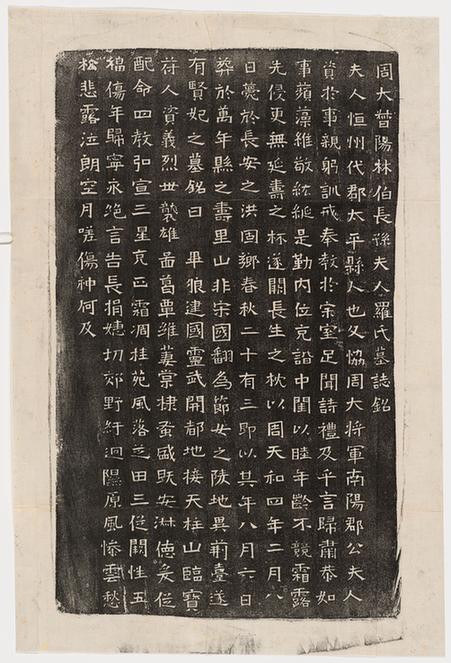 周大督陽林伯長孫夫人羅氏墓誌銘
夫人恒州代郡太平縣人也父協周大將軍南陽郡公夫人
資於事親躬訓戒奉教於宗室足聞詩禮及乎言歸肅恭如
事蘋藻維敬紘綖是勤內位克諧中閨以睦年齡不競霜露
先侵更無延壽之杯遂闕長生之枕以周天和四年二月八
日薨於長安之洪固鄉春秋二十有三即以其年八月六日
葬於萬年縣之壽里山非宋國翻為節女之陵地異荊臺遂
有賢妃之墓銘曰 畢狼建國靈武開都地接天柱山臨寶
符人資義烈世襲雄啚葛覃維萋棠棣蚤盛既安淋德爰從
配命四教弘宣三星克正霜凋桂苑風落芝田三從闕性五
福傷年歸寧永絕言告長捐悽切郊野紆迴隰原風慘雲愁
松悲露泣朗空月嗟傷神何及